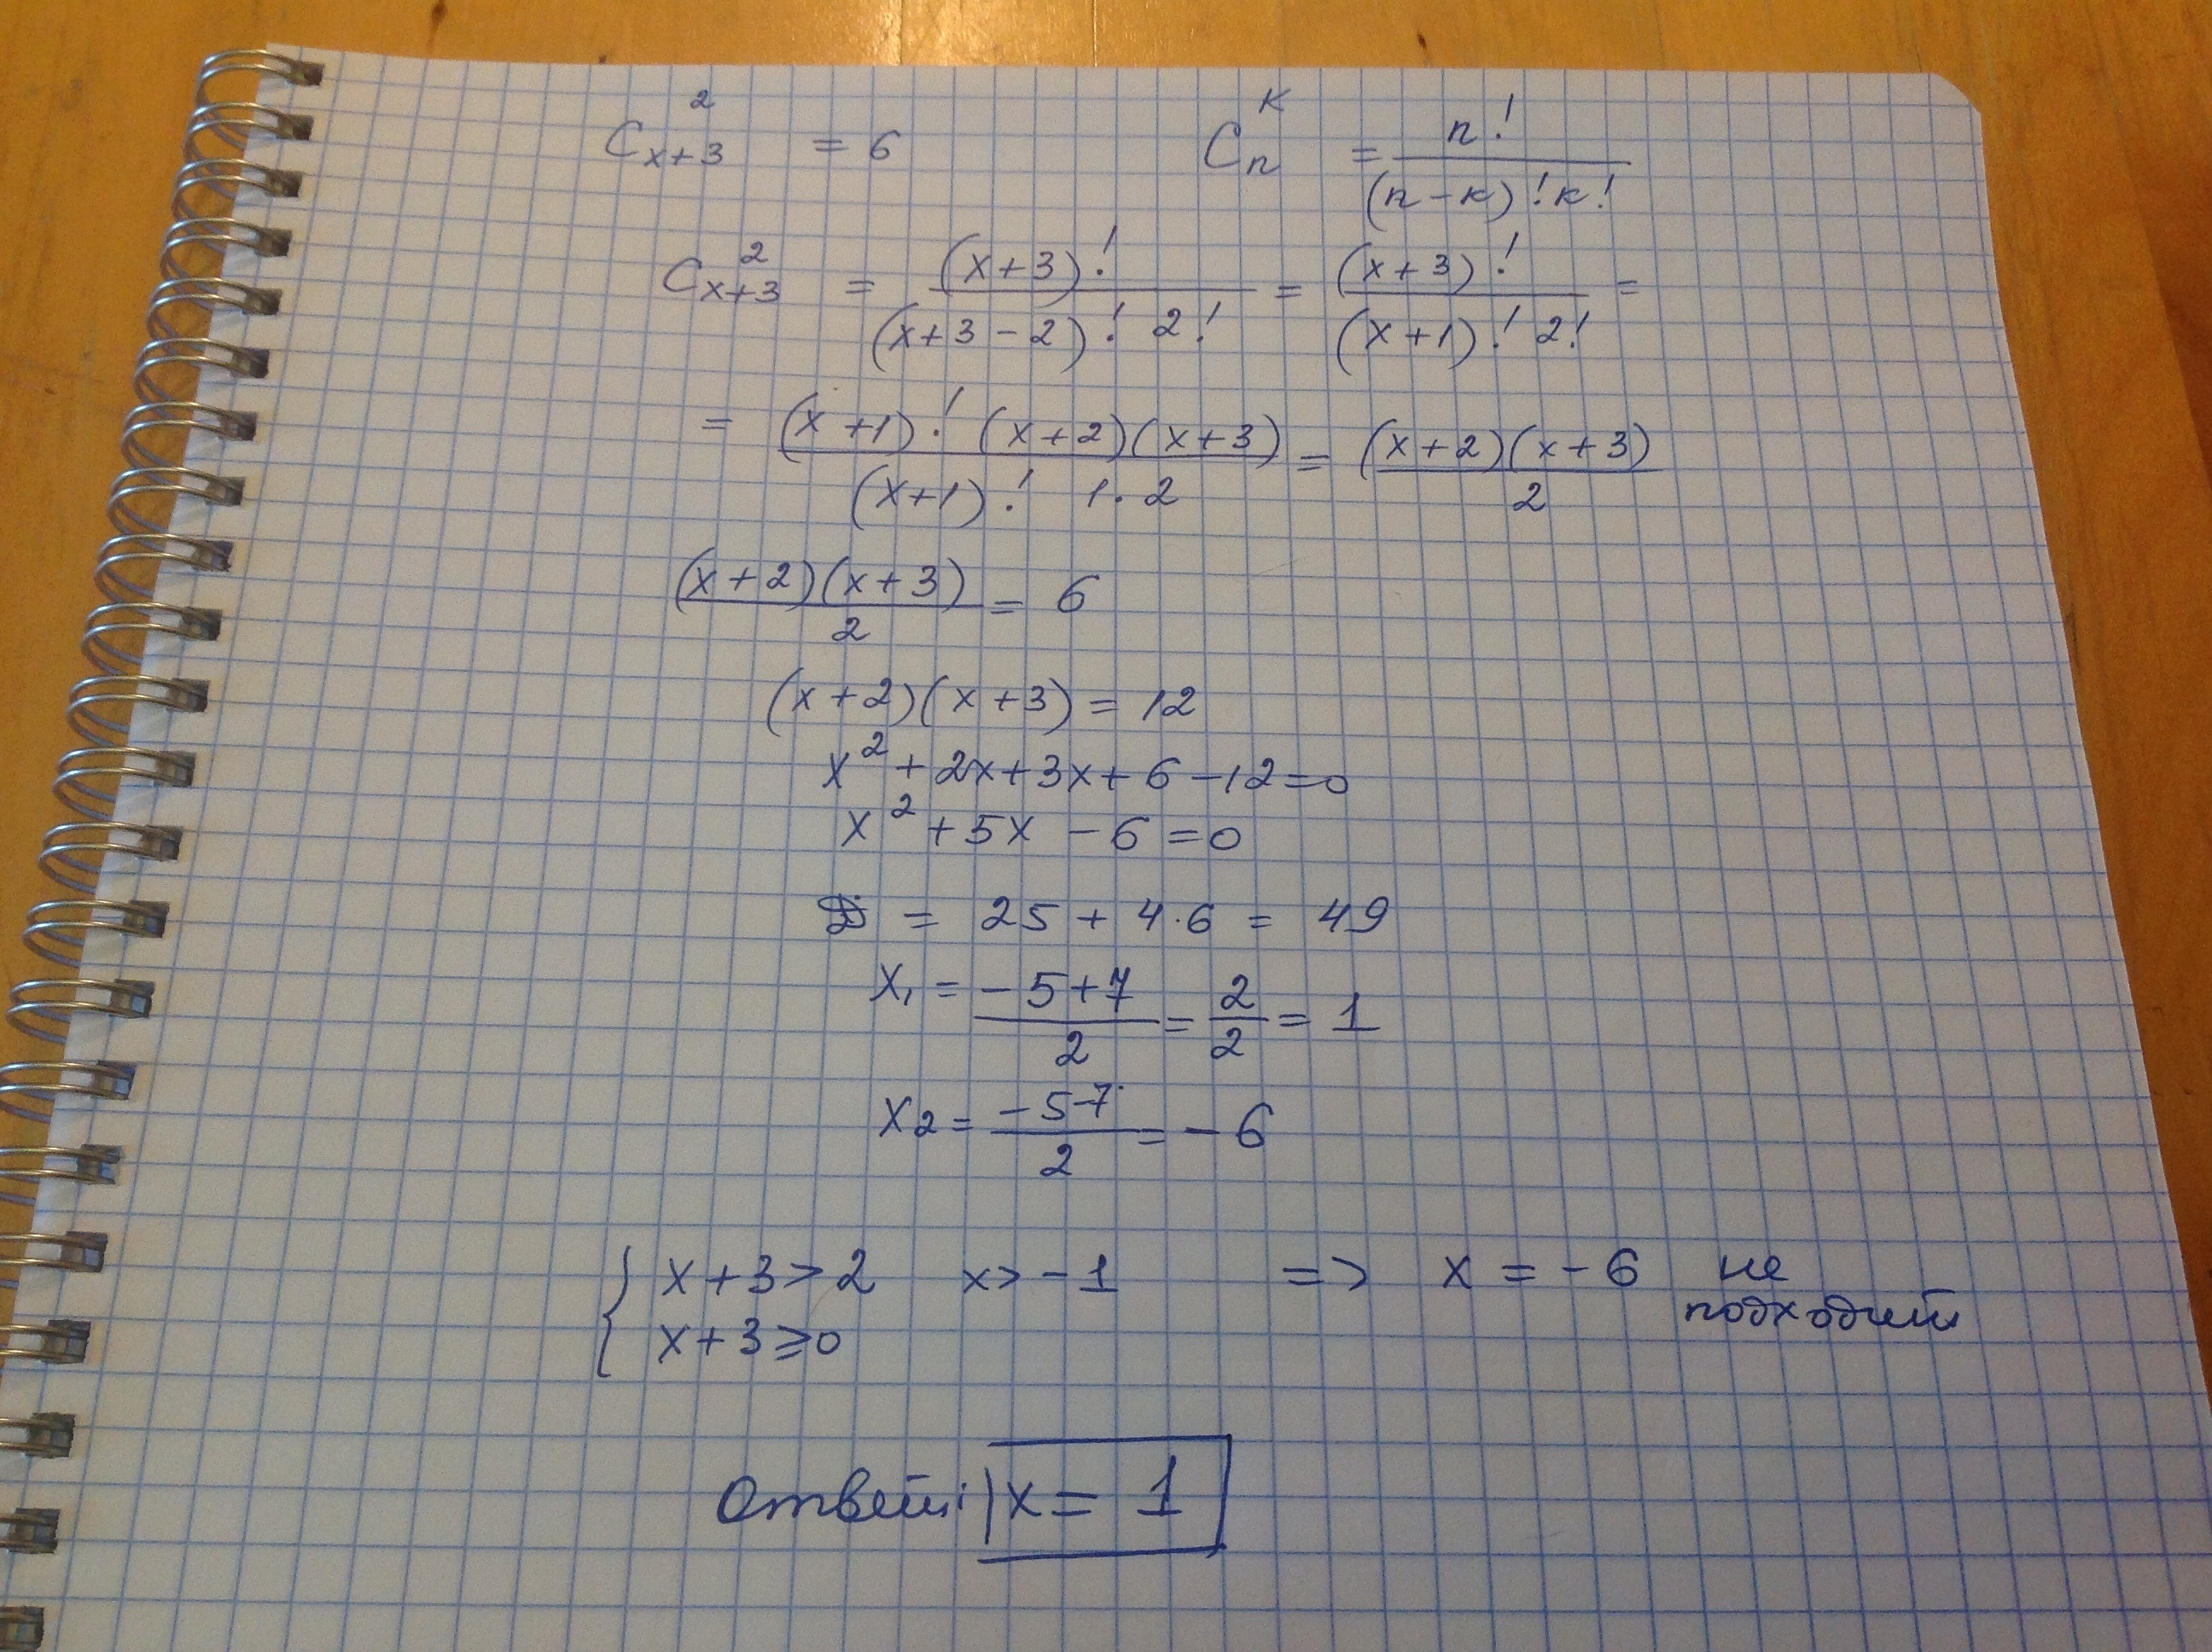 C²ₓ₊₃ = 6    Cₙᴷ = n! / (n-к)! к!
C²ₓ₊₃ = (x+3)! / (x+3-2)! 2! = (x+3)! / (x+1)! 2! =
= (x+1)! (x+2)(x+3) / (x+1)! 1·2 = (x+2)(x+3) / 2
(x+2)(x+3) / 2 = 6
(x+2)(x+3) = 12
x² + 2x + 3x + 6 - 12 = 0
x² + 5x - 6 = 0
D = 25 + 4·6 = 49
x₁ = -5+7 / 2 = 2/2 = 1
x₂ = -5-7 / 2 = -6
{ x+3 > 2    x > -1    => x = -6 не подходит
x+3 ≥ 0
Ответ: x = 1